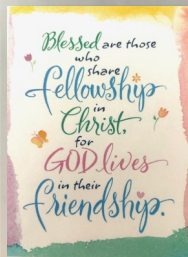 Blessed are those
who
share
fellowship
in
Christ,
for
GOD lives
in their
friendship.